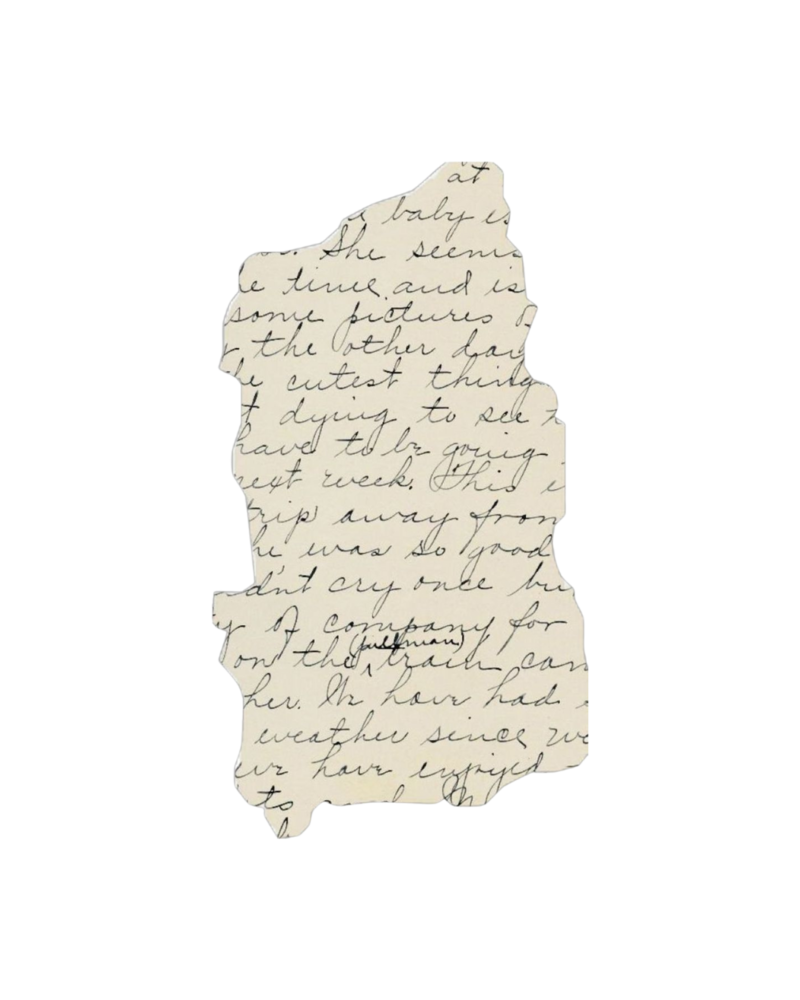 at
baby is
She seems
e time and is
some pictures o
the other day
he cutest thing
t dying to see
have to be going
next week. This i
trip away from
he was so good
dn't cry once bu
y of company for
(pullman)
on the train can
her. We have had
weather since we
we have enjoyed
ts